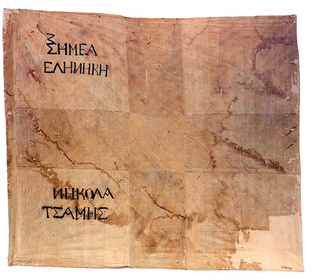 ΣΗΜΕΑ
ΕΛΗΙΝΚΗ
ΝΗΚΟΛΑ
ΤΣΑΜΗΣ